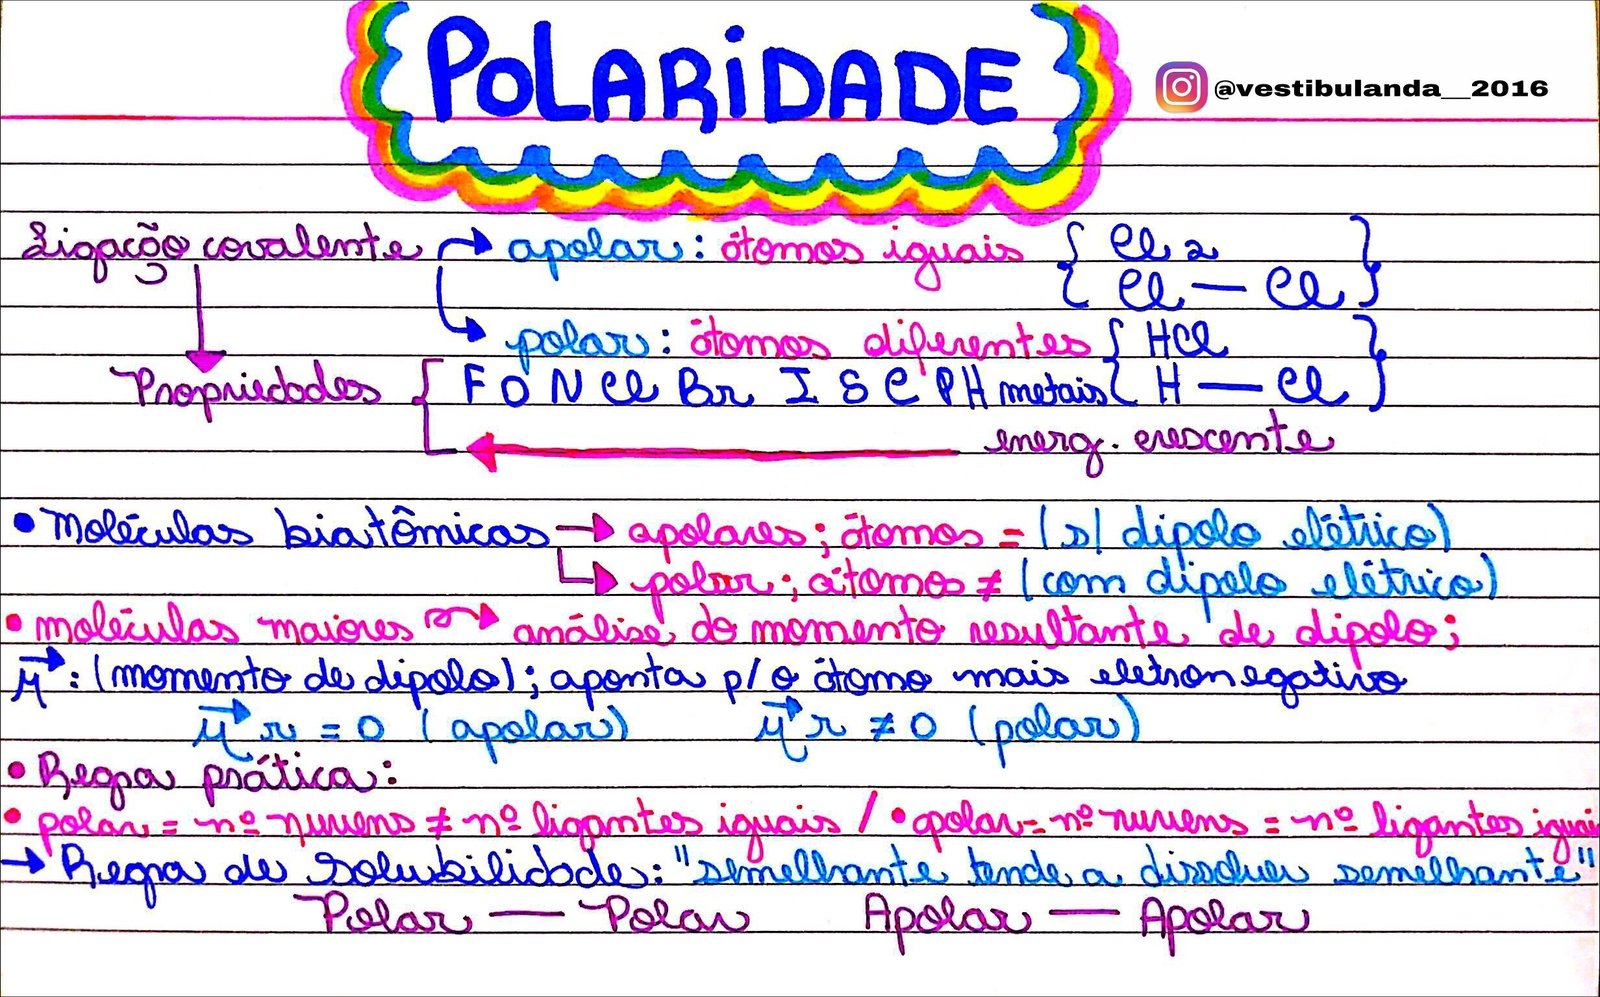 POLARIDADE
@vestibulanda__2016
Ligação covalente → apolar: átomos iguais { Cl2 }
{ Cl — Cl }
polar: átomos diferentes { HCl }
Propriedades { F O N Cl Br I S C P H metais { H — Cl }
energ. crescente
• Moléculas biatômicas → apolares; átomos = (s/ dipolo elétrico)
→ polar; átomos ≠ (com dipolo elétrico)
• moléculas maiores → análise do momento resultante de dipolo;
μ⃗: (momento de dipolo); aponta p/ o átomo mais eletronegativo
μ⃗r = 0 (apolar) μ⃗r ≠ 0 (polar)
• Regra prática:
• polar = nº nuvens ≠ nº ligantes iguais / • apolar = nº nuvens = nº ligantes iguais
→ Regra de solubilidade: "semelhante tende a dissolver semelhante"
Polar — Polar Apolar — Apolar